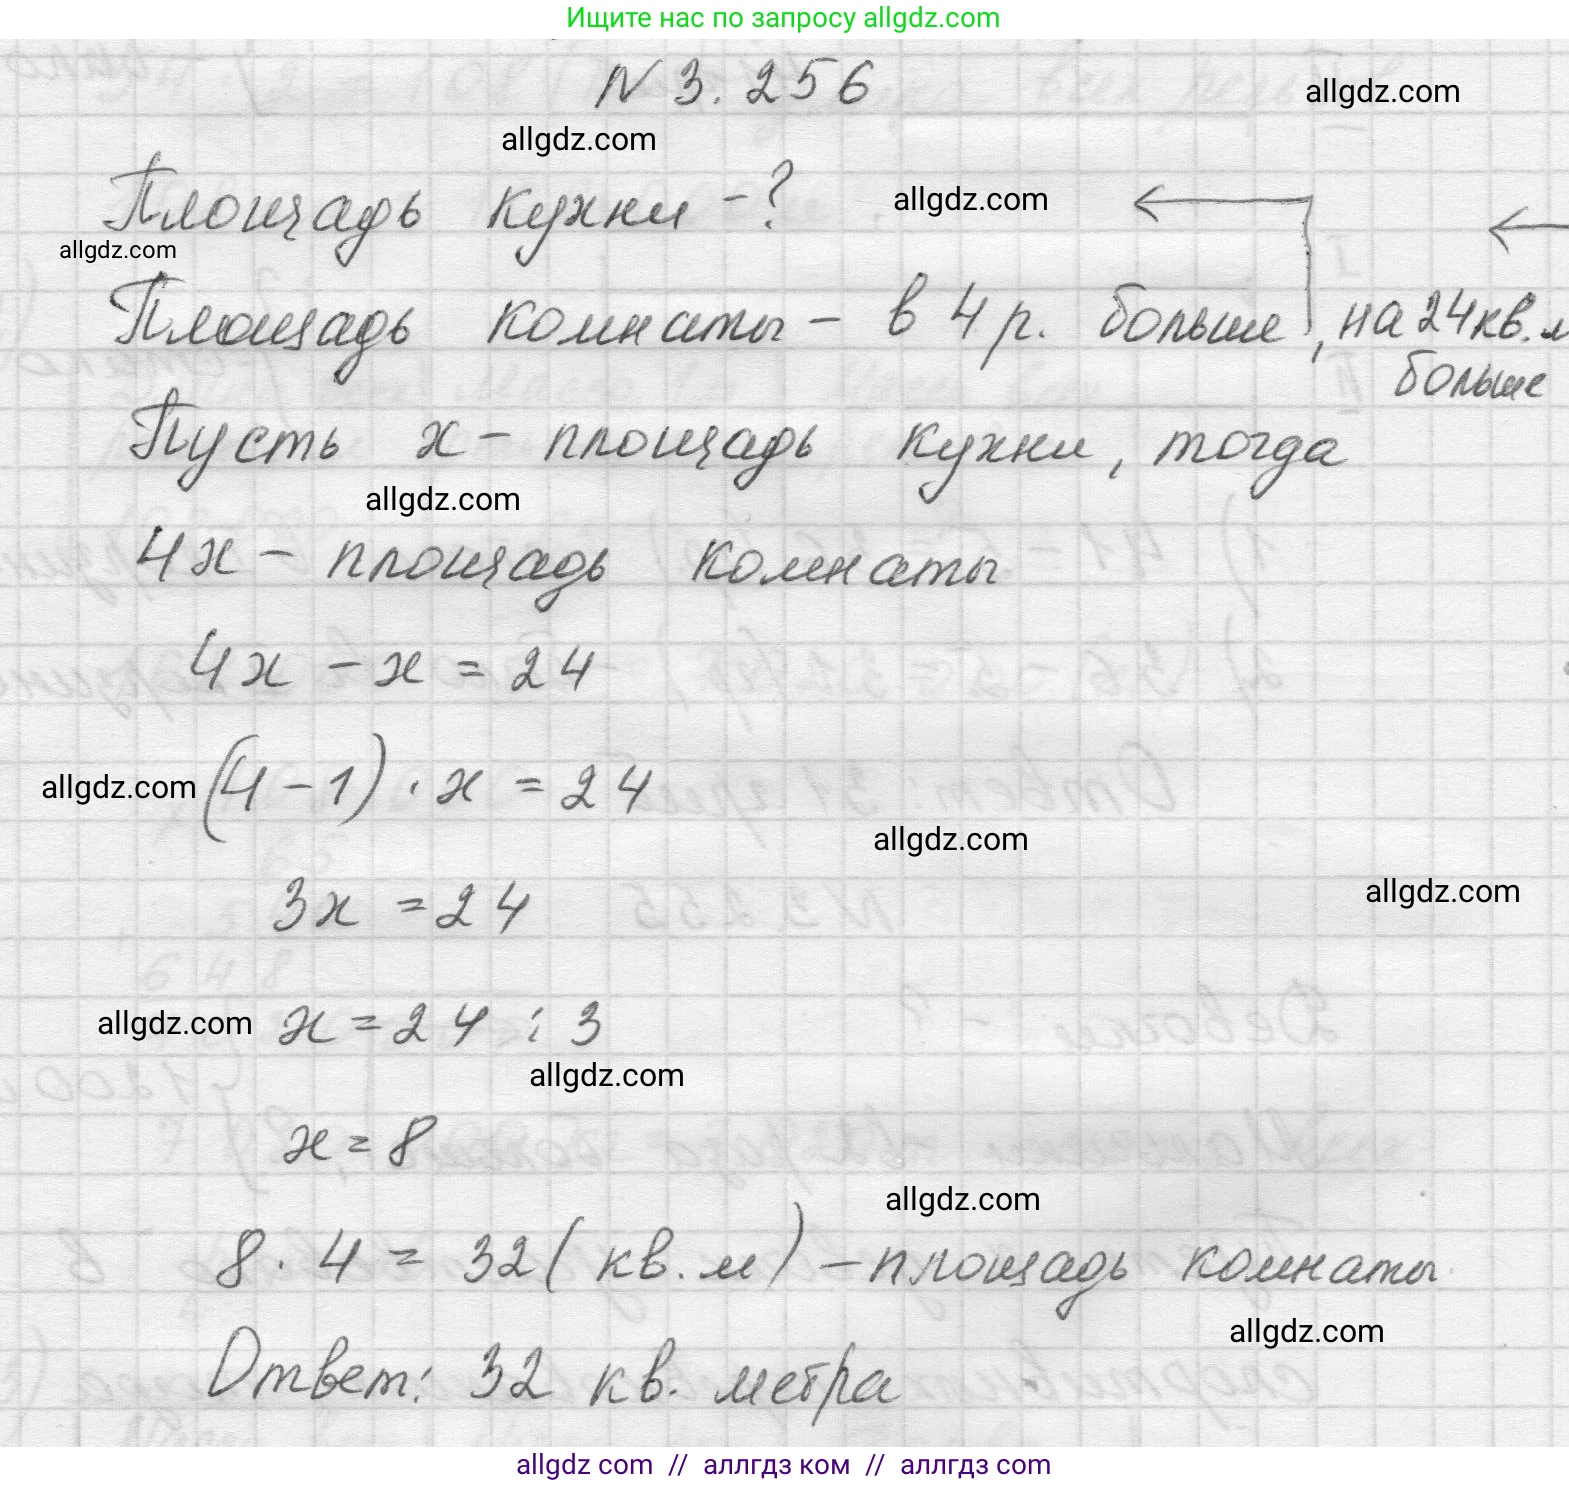 Ищите нас по запросу allgdz.com
N 3.256
allgdz.com
allgdz.com
Площадь кухни - ?
allgdz.com
allgdz.com
Площадь комнаты - в 4 р. больше, на 24 кв. м
больше
Пусть x - площадь кухни, тогда
allgdz.com
4x - площадь комнаты
4x - x = 24
allgdz.com
(4 - 1) · x = 24
allgdz.com
allgdz.com
3x = 24
allgdz.com
x = 24 : 3
allgdz.com
x = 8
allgdz.com
8 · 4 = 32 (кв. м) - площадь комнаты
allgdz.com
Ответ: 32 кв. метра
allgdz com // аллгдз ком // аллгдз com